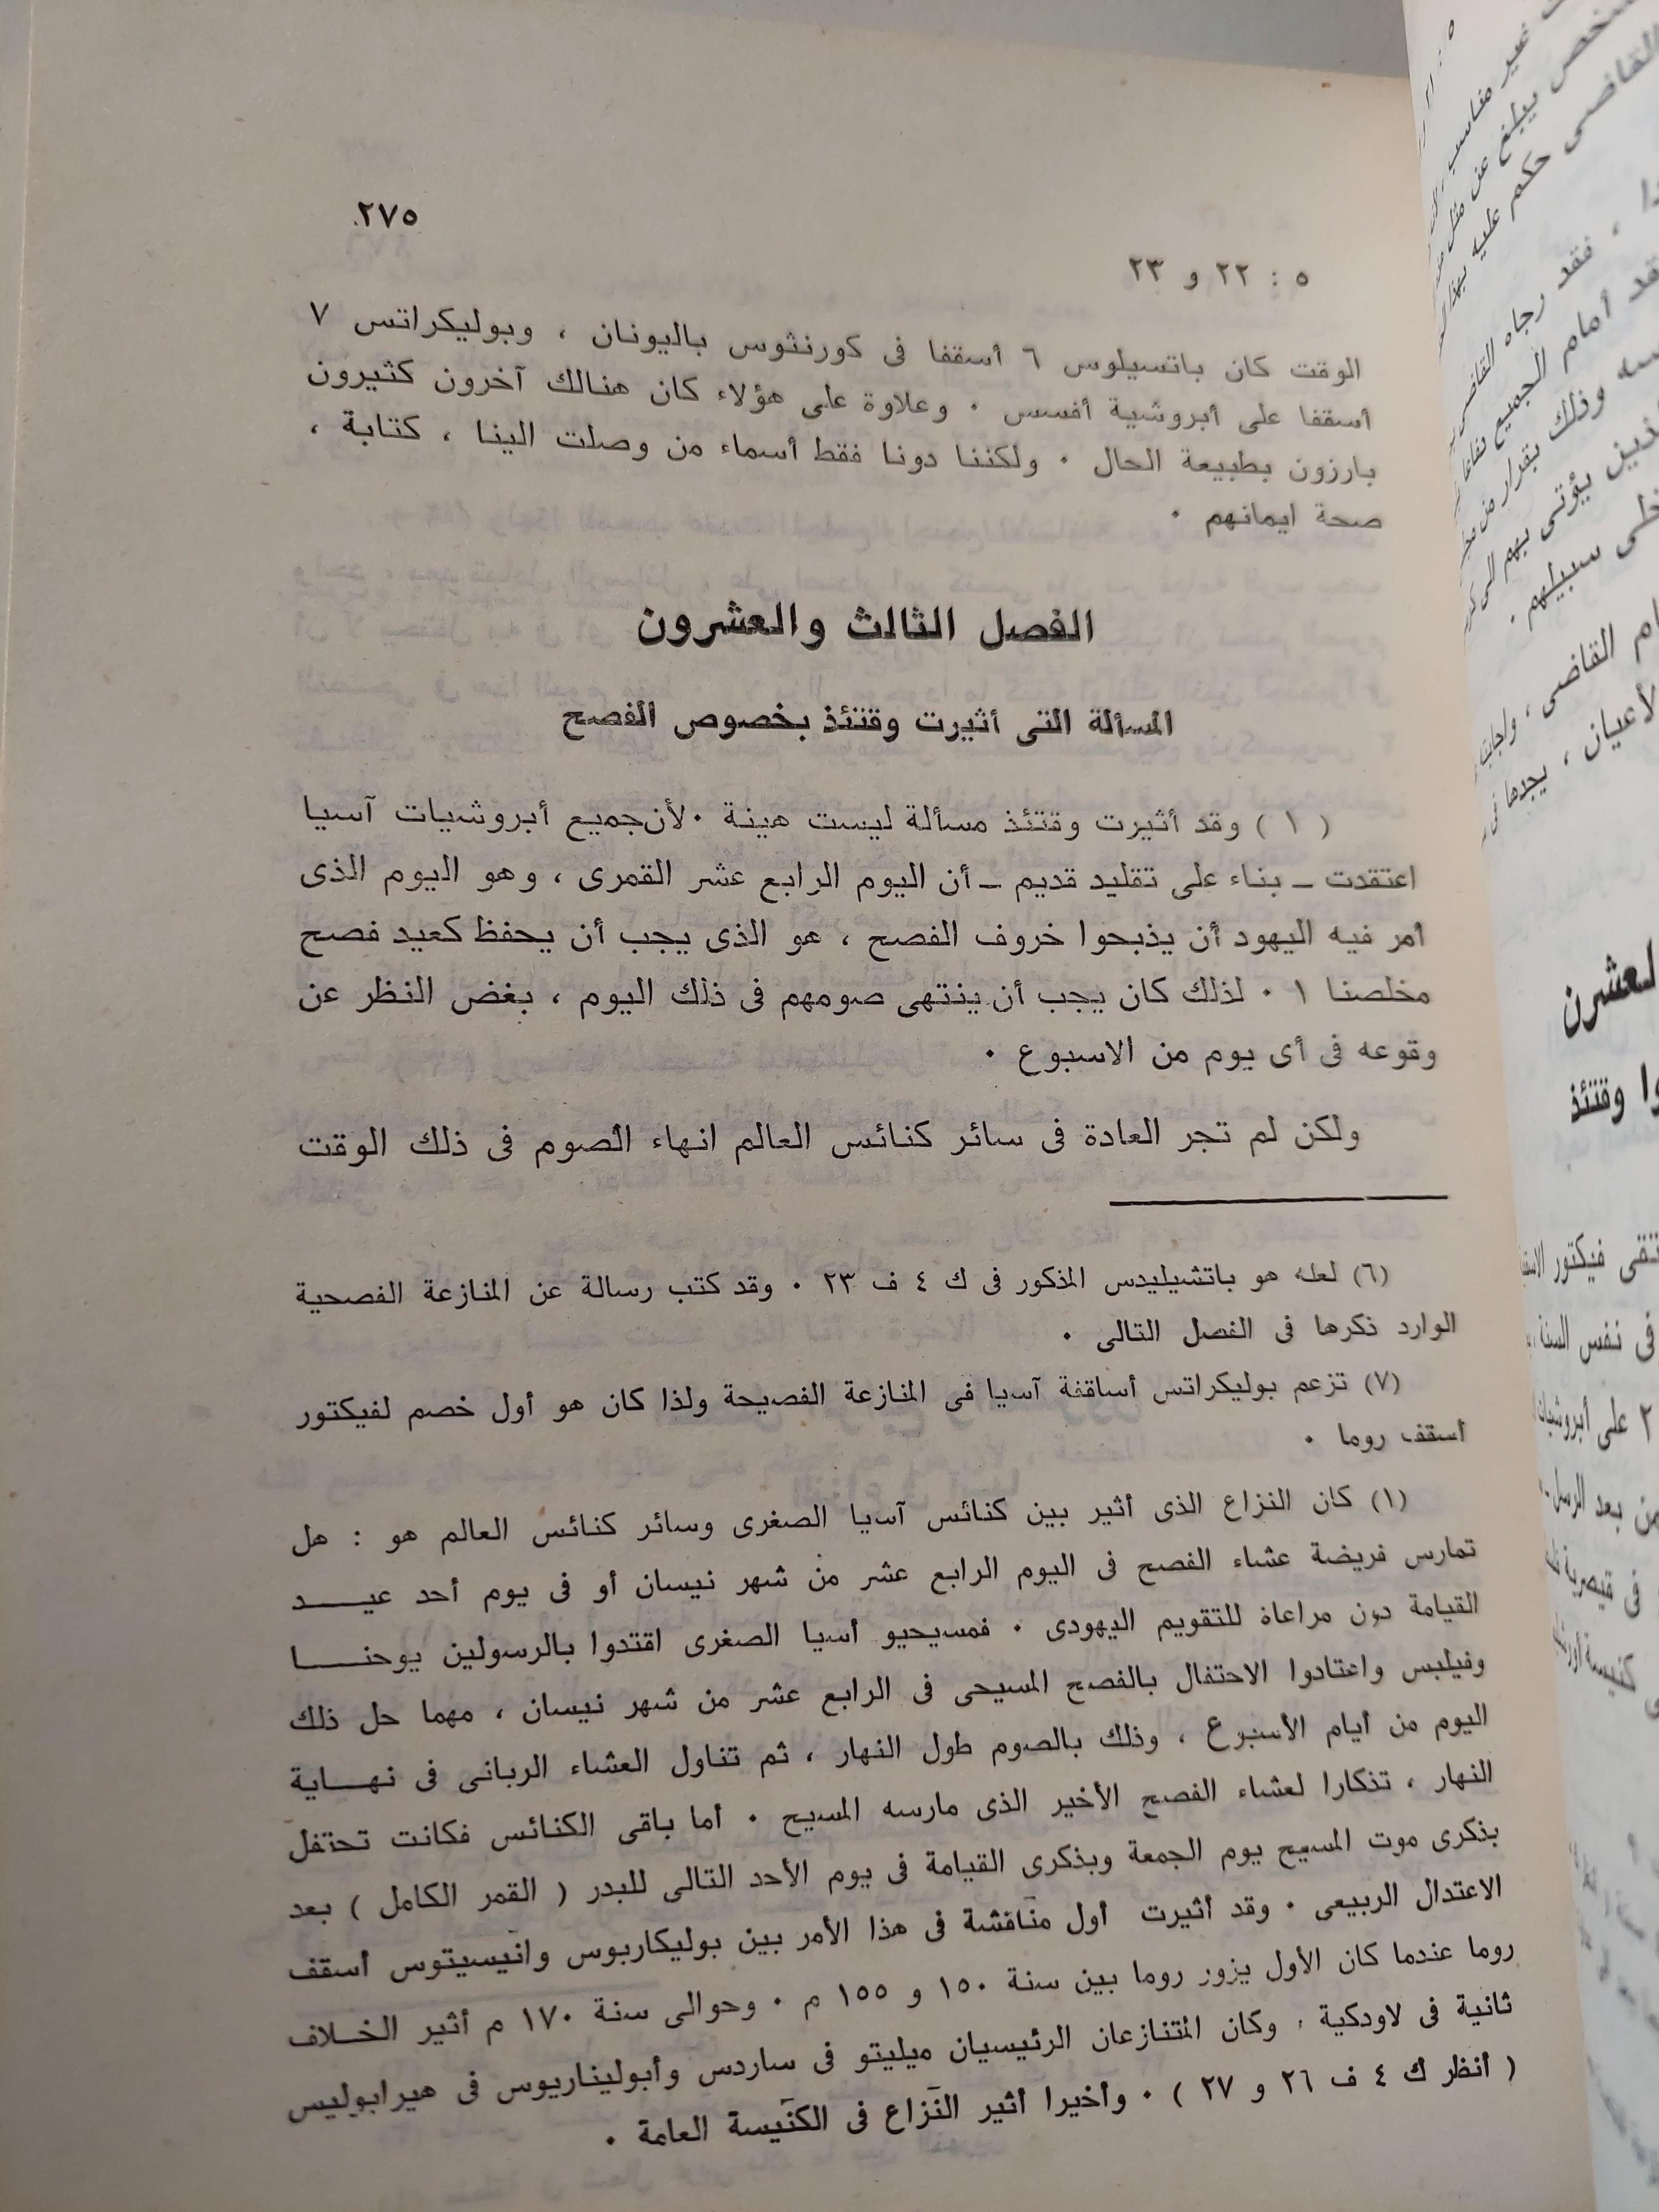 ٢٧٥
٥ : ٢٢ و ٢٣
الوقت كان باتسيلوس ٦ أسقفا فى كورنثوس باليونان ، وبوليكراتس ٧
أسقفا على أبروشية أفسس ٠ وعلاوة على هؤلاء كان هنالك آخرون كثيرون
بارزون بطبيعة الحال ٠ ولكننا دونا فقط أسماء من وصلت الينا ، كتابة ،
صحة ايمانهم ٠
الفصل الثالث والعشرون
المسألة التى أثيرت وقتئذ بخصوص الفصح
( ١ ) وقد أثيرت وقتئذ مسألة ليست هينة ٠ لأن جميع أبروشيات آسيا
اعتقدت ــ بناء على تقليد قديم ــ أن اليوم الرابع عشر القمرى ، وهو اليوم الذى
أمر فيه اليهود أن يذبحوا خروف الفصح ، هو الذى يجب أن يحفظ كعيد فصح
مخلصنا ١ ٠ لذلك كان يجب أن ينتهى صومهم فى ذلك اليوم ، بغض النظر عن
وقوعه فى أى يوم من الاسبوع ٠
ولكن لم تجر العادة فى سائر كنائس العالم انهاء الصوم فى ذلك الوقت
(٦) لعله هو باتشيليدس المذكور فى ك ٤ ف ٢٣ ٠ وقد كتب رسالة عن المنازعة الفصحية
الوارد ذكرها فى الفصل التالى ٠
(٧) تزعم بوليكراتس أساقفة آسيا فى المنازعة الفصيحة ولذا كان هو أول خصم لفيكتور
أسقف روما ٠
(١) كان النزاع الذى أثير بين كنائس آسيا الصغرى وسائر كنائس العالم هو : هل
تمارس فريضة عشاء الفصح فى اليوم الرابع عشر من شهر نيسان أو فى يوم أحد عيـــد
القيامة دون مراعاة للتقويم اليهودى ٠ فمسيحيو أسيا الصغرى اقتدوا بالرسولين يوحنـــا
وفيلبس واعتادوا الاحتفال بالفصح المسيحى فى الرابع عشر من شهر نيسان ، مهما حل ذلك
اليوم من أيام الأسبوع ، وذلك بالصوم طول النهار ، ثم تناول العشاء الربانى فى نهـــاية
النهار ، تذكارا لعشاء الفصح الأخير الذى مارسه المسيح ٠ أما باقى الكنائس فكانت تحتفل
بذكرى موت المسيح يوم الجمعة وبذكرى القيامة فى يوم الأحد التالى للبدر ( القمر الكامل ) بعد
الاعتدال الربيعى ٠ وقد أثيرت أول مناقشة فى هذا الأمر بين بوليكاربوس وانيسيتوس أسقف
روما عندما كان الأول يزور روما بين سنة ١٥٠ و ١٥٥ م ٠ وحوالى سنة ١٧٠ م أثير الخـــلاف
ثانية فى لاودكية ، وكان المتنازعان الرئيسيان ميليتو فى ساردس وأبوليناريوس فى هيرابوليس
( أنظر ك ٤ ف ٢٦ و ٢٧ ) ٠ وأخيرا أثير النزاع فى الكنيسة العامة ٠